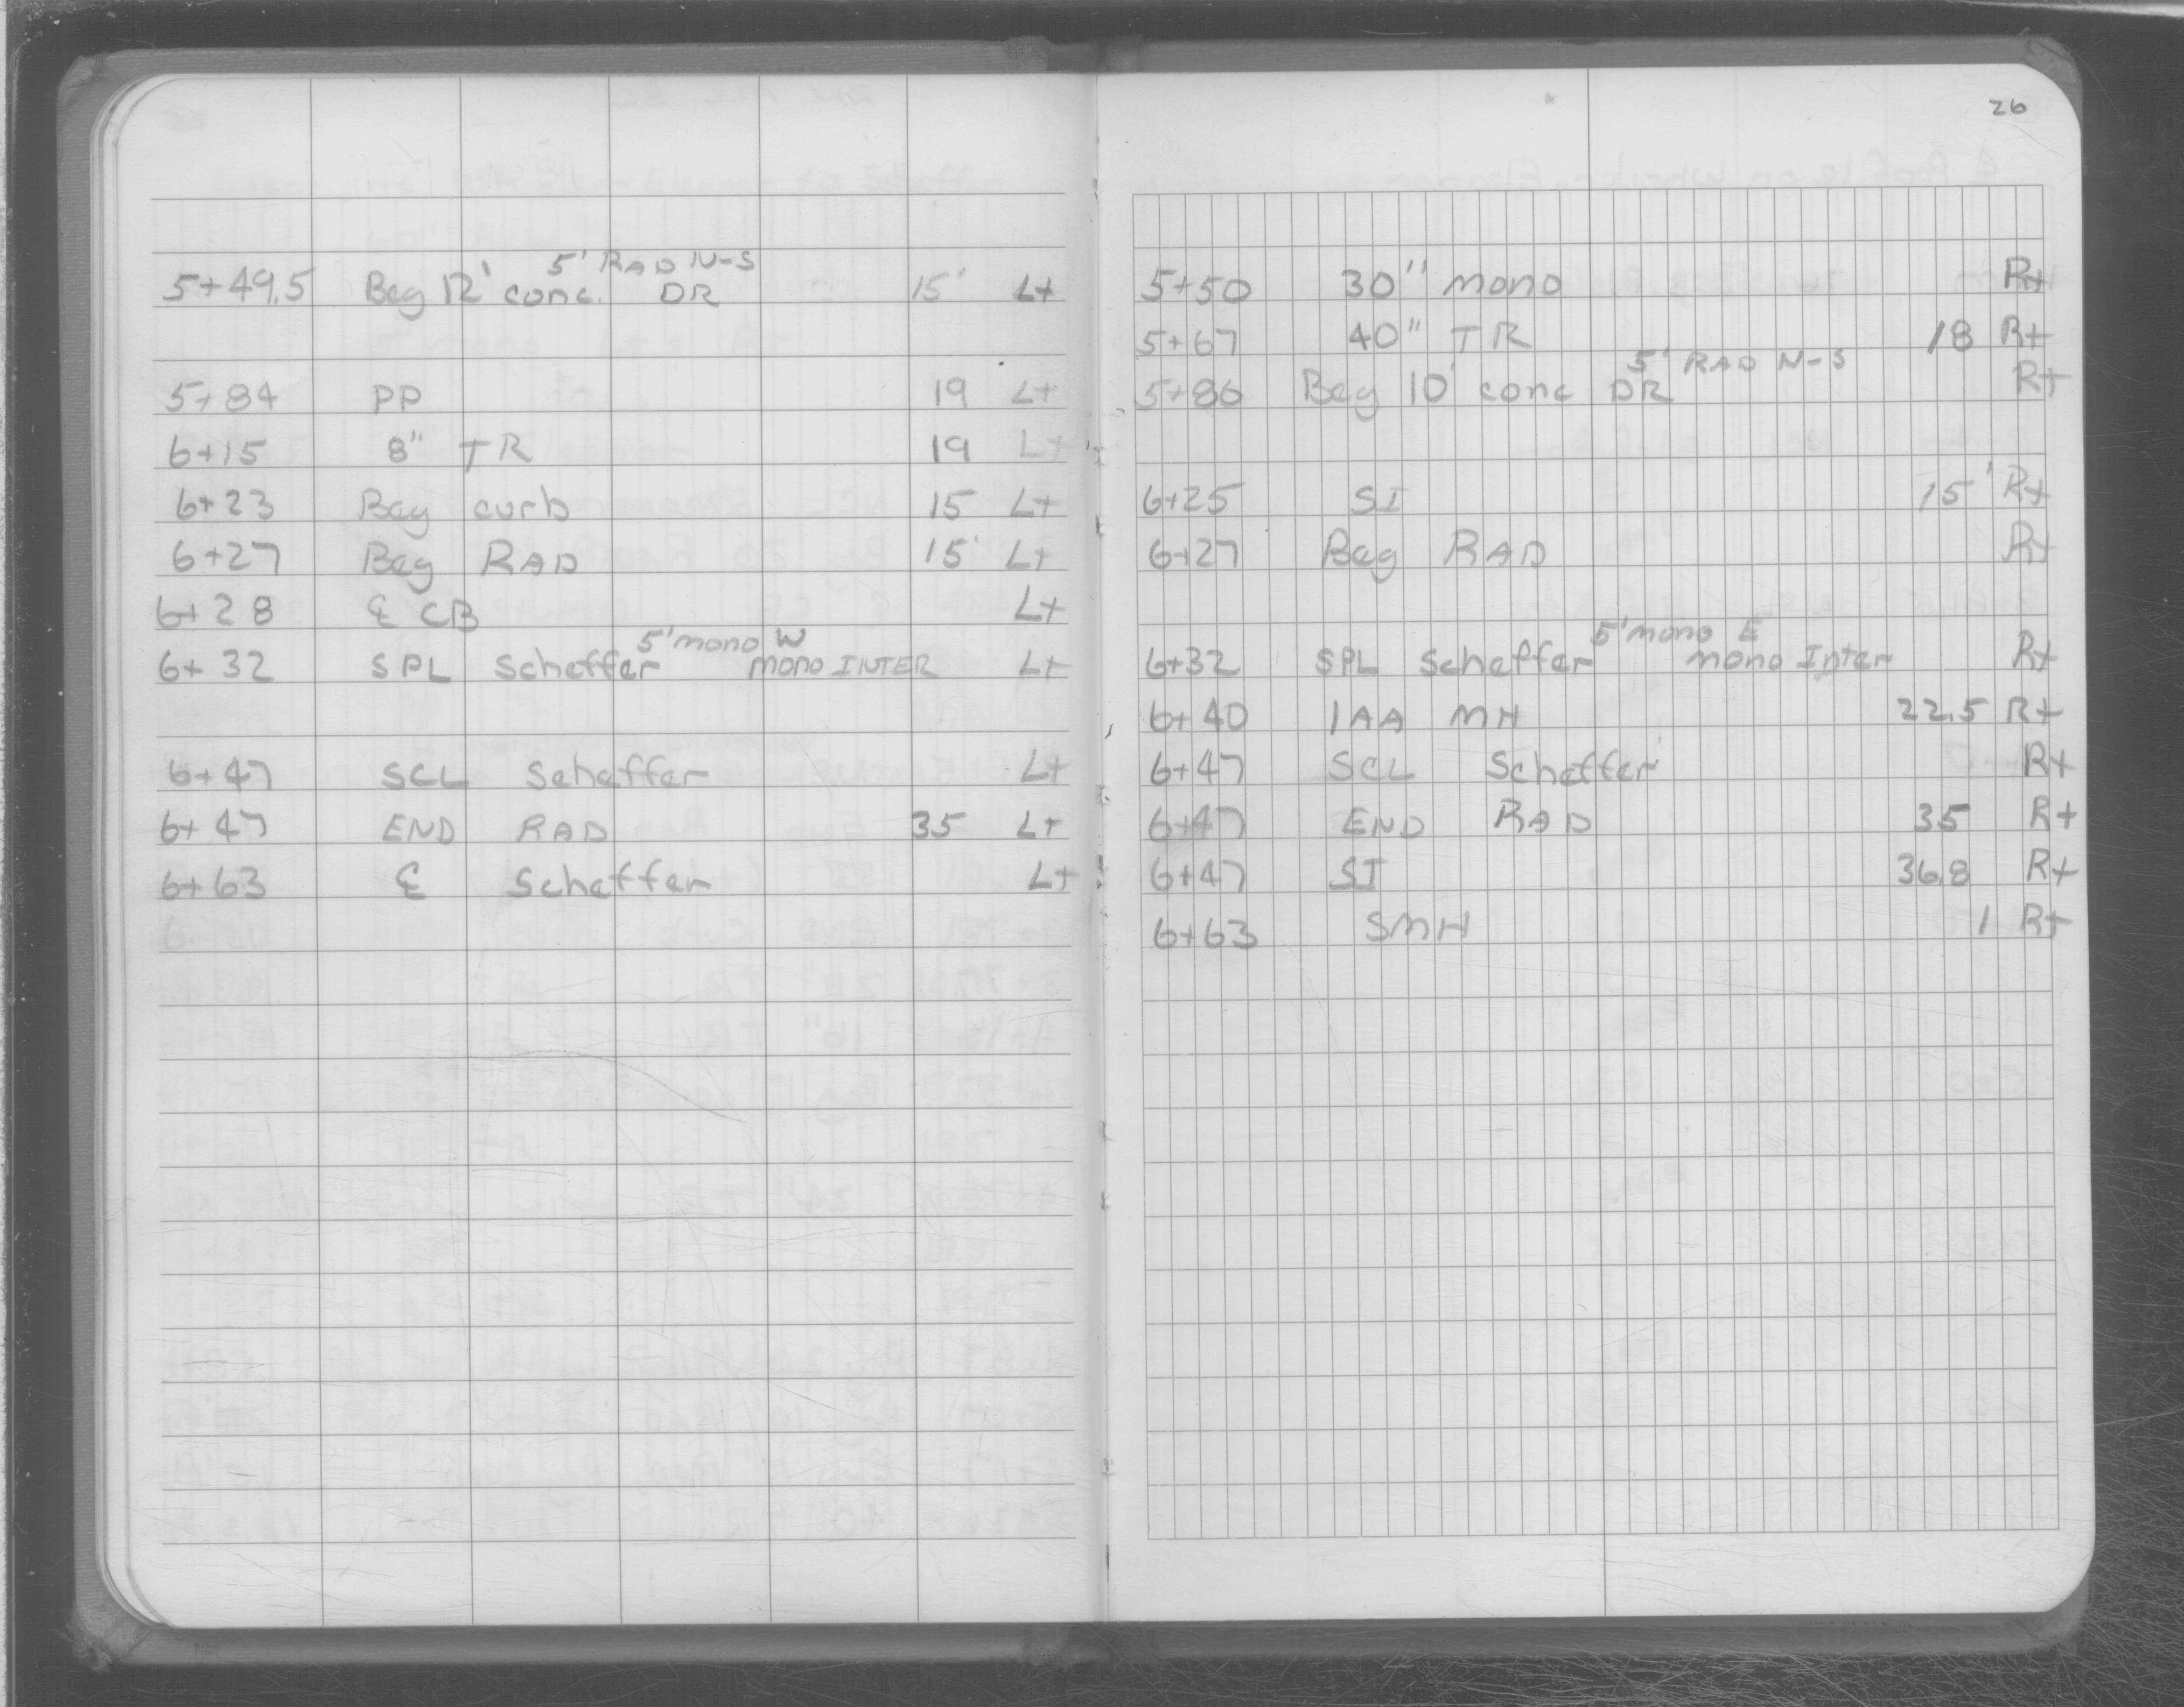 5+49.5 Beg 12' conc. DR 5' RAD N-S 15' Lt
5+84 PP 19 Lt
6+15 8" TR 19 Lt
6+23 Beg curb 15 Lt
6+27 Beg RAD 15' Lt
6+28 ℄ CB Lt
6+32 SPL Scheffer 5' mono W mono INTER Lt
6+47 SCL Scheffer Lt
6+47 END RAD 35 Lt
6+63 ℄ Scheffer Lt
26
5+50 30" mono Rt
5+67 40" TR 18 Rt
5+86 Beg 10' conc DR 5' RAD N-S Rt
6+25 SI 15' Rt
6+27 Beg RAD Rt
6+32 SPL Scheffer 5' mono E mono Inter Rt
6+40 1AA MH 22.5 Rt
6+47 SCL Scheffer Rt
6+47 END RAD 35 Rt
6+47 SI 36.8 Rt
6+63 SMH 1 Rt